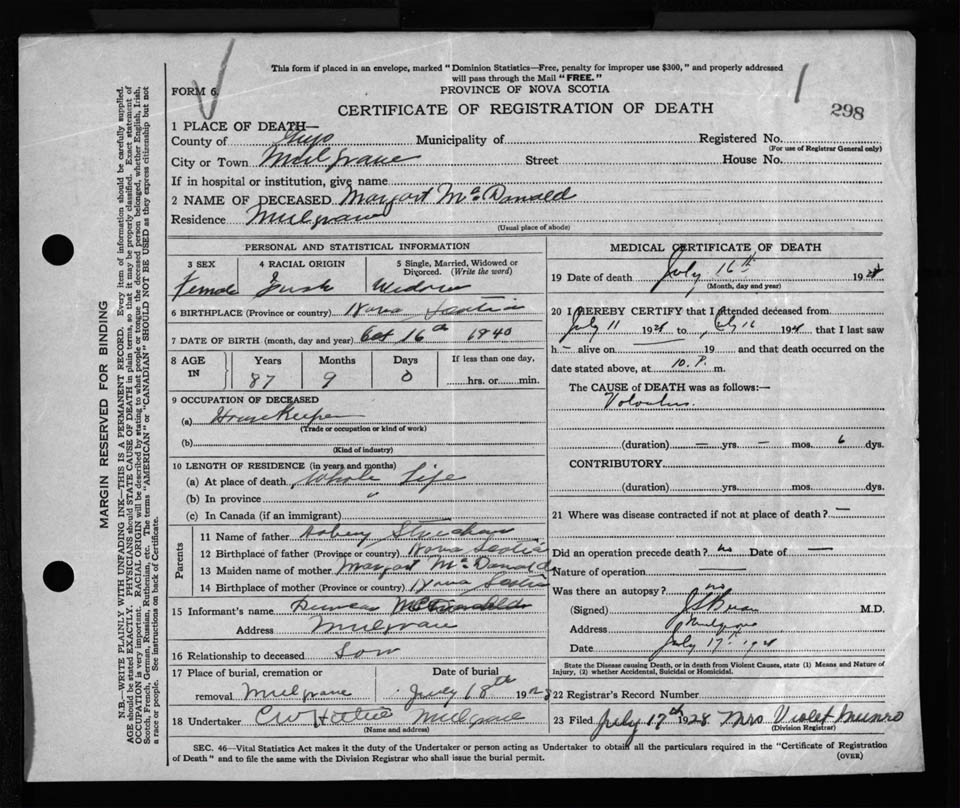 This form if placed in an envelope, marked "Dominion Statistics—Free, penalty for improper use $300," and properly addressed
will pass through the Mail "FREE."
FORM 6.
PROVINCE OF NOVA SCOTIA
CERTIFICATE OF REGISTRATION OF DEATH
298
1 PLACE OF DEATH—
County of Guys Municipality of Registered No.
(For use of Registrar General only)
City or Town Mulgrave Street House No.
If in hospital or institution, give name
2 NAME OF DECEASED Margart McDonald
Residence Mulgrave
(Usual place of abode)
PERSONAL AND STATISTICAL INFORMATION
3 SEX 4 RACIAL ORIGIN 5 Single, Married, Widowed or Divorced. (Write the word)
Female Widow
6 BIRTHPLACE (Province or country) Nova Scotia
7 DATE OF BIRTH (month, day and year) Oct 16th 1840
8 AGE IN Years Months Days If less than one day,
87 9 0 hrs. or min.
9 OCCUPATION OF DECEASED
(a) House Keeper
(Trade or occupation or kind of work)
(b)
(Kind of industry)
10 LENGTH OF RESIDENCE (in years and months)
(a) At place of death Whole Life
(b) In province "
(c) In Canada (if an immigrant)
Parents
11 Name of father
12 Birthplace of father (Province or country) Nova Scotia
13 Maiden name of mother Margart McDonald
14 Birthplace of mother (Province or country) Nova Scotia
15 Informant's name Duncan McDonald
Address Mulgrave
16 Relationship to deceased Son
17 Place of burial, cremation or Date of burial
removal Mulgrave July 18th 1928
18 Undertaker Mulgrave
(Name and address)
MEDICAL CERTIFICATE OF DEATH
19 Date of death July 16th 1928
(Month, day and year)
20 I HEREBY CERTIFY that I attended deceased from
July 11 1928 to July 16 1928 that I last saw
h— alive on 19 and that death occurred on the
date stated above, at 10. P. m.
The CAUSE of DEATH was as follows:—
Volvulus.
(duration) — yrs. — mos. 6 dys.
CONTRIBUTORY
(duration) yrs. mos. dys.
21 Where was disease contracted if not at place of death? —
Did an operation precede death? no Date of —
Nature of operation —
Was there an autopsy? no
(Signed) M.D.
Address Mulgrave
Date July 17th 1928
State the Disease causing Death, or in death from Violent Causes, state (1) Means and Nature of
Injury, (2) whether Accidental, Suicidal or Homicidal.
22 Registrar's Record Number
23 Filed July 17th 1928 Mrs Violet Munro
(Division Registrar)
SEC. 46—Vital Statistics Act makes it the duty of the Undertaker or person acting as Undertaker to obtain all the particulars required in the "Certificate of Registration
of Death" and to file the same with the Division Registrar who shall issue the burial permit.
(OVER)
MARGIN RESERVED FOR BINDING
N.B.—WRITE PLAINLY WITH UNFADING INK—THIS IS A PERMANENT RECORD. Every item of information should be carefully supplied.
AGE should be stated EXACTLY. PHYSICIANS should STATE CAUSE OF DEATH in plain terms, so that it may be properly classified. Exact statement of
OCCUPATION is very important. RACIAL ORIGIN will be described by stating to what people or tongue the deceased person belonged, whether English, Irish,
Scotch, French, German, Russian, Ruthenian, etc. The terms "AMERICAN" or "CANADIAN" SHOULD NOT BE USED as they express citizenship but not
a race or people. See instructions on back of Certificate.